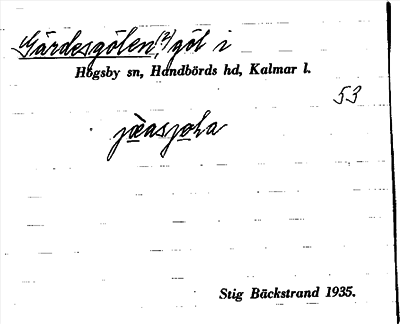 Gärdesgölen, (?) göl i
Högsby sn, Handbörds hd, Kalmar l.
53
Stig Bäckstrand 1935.